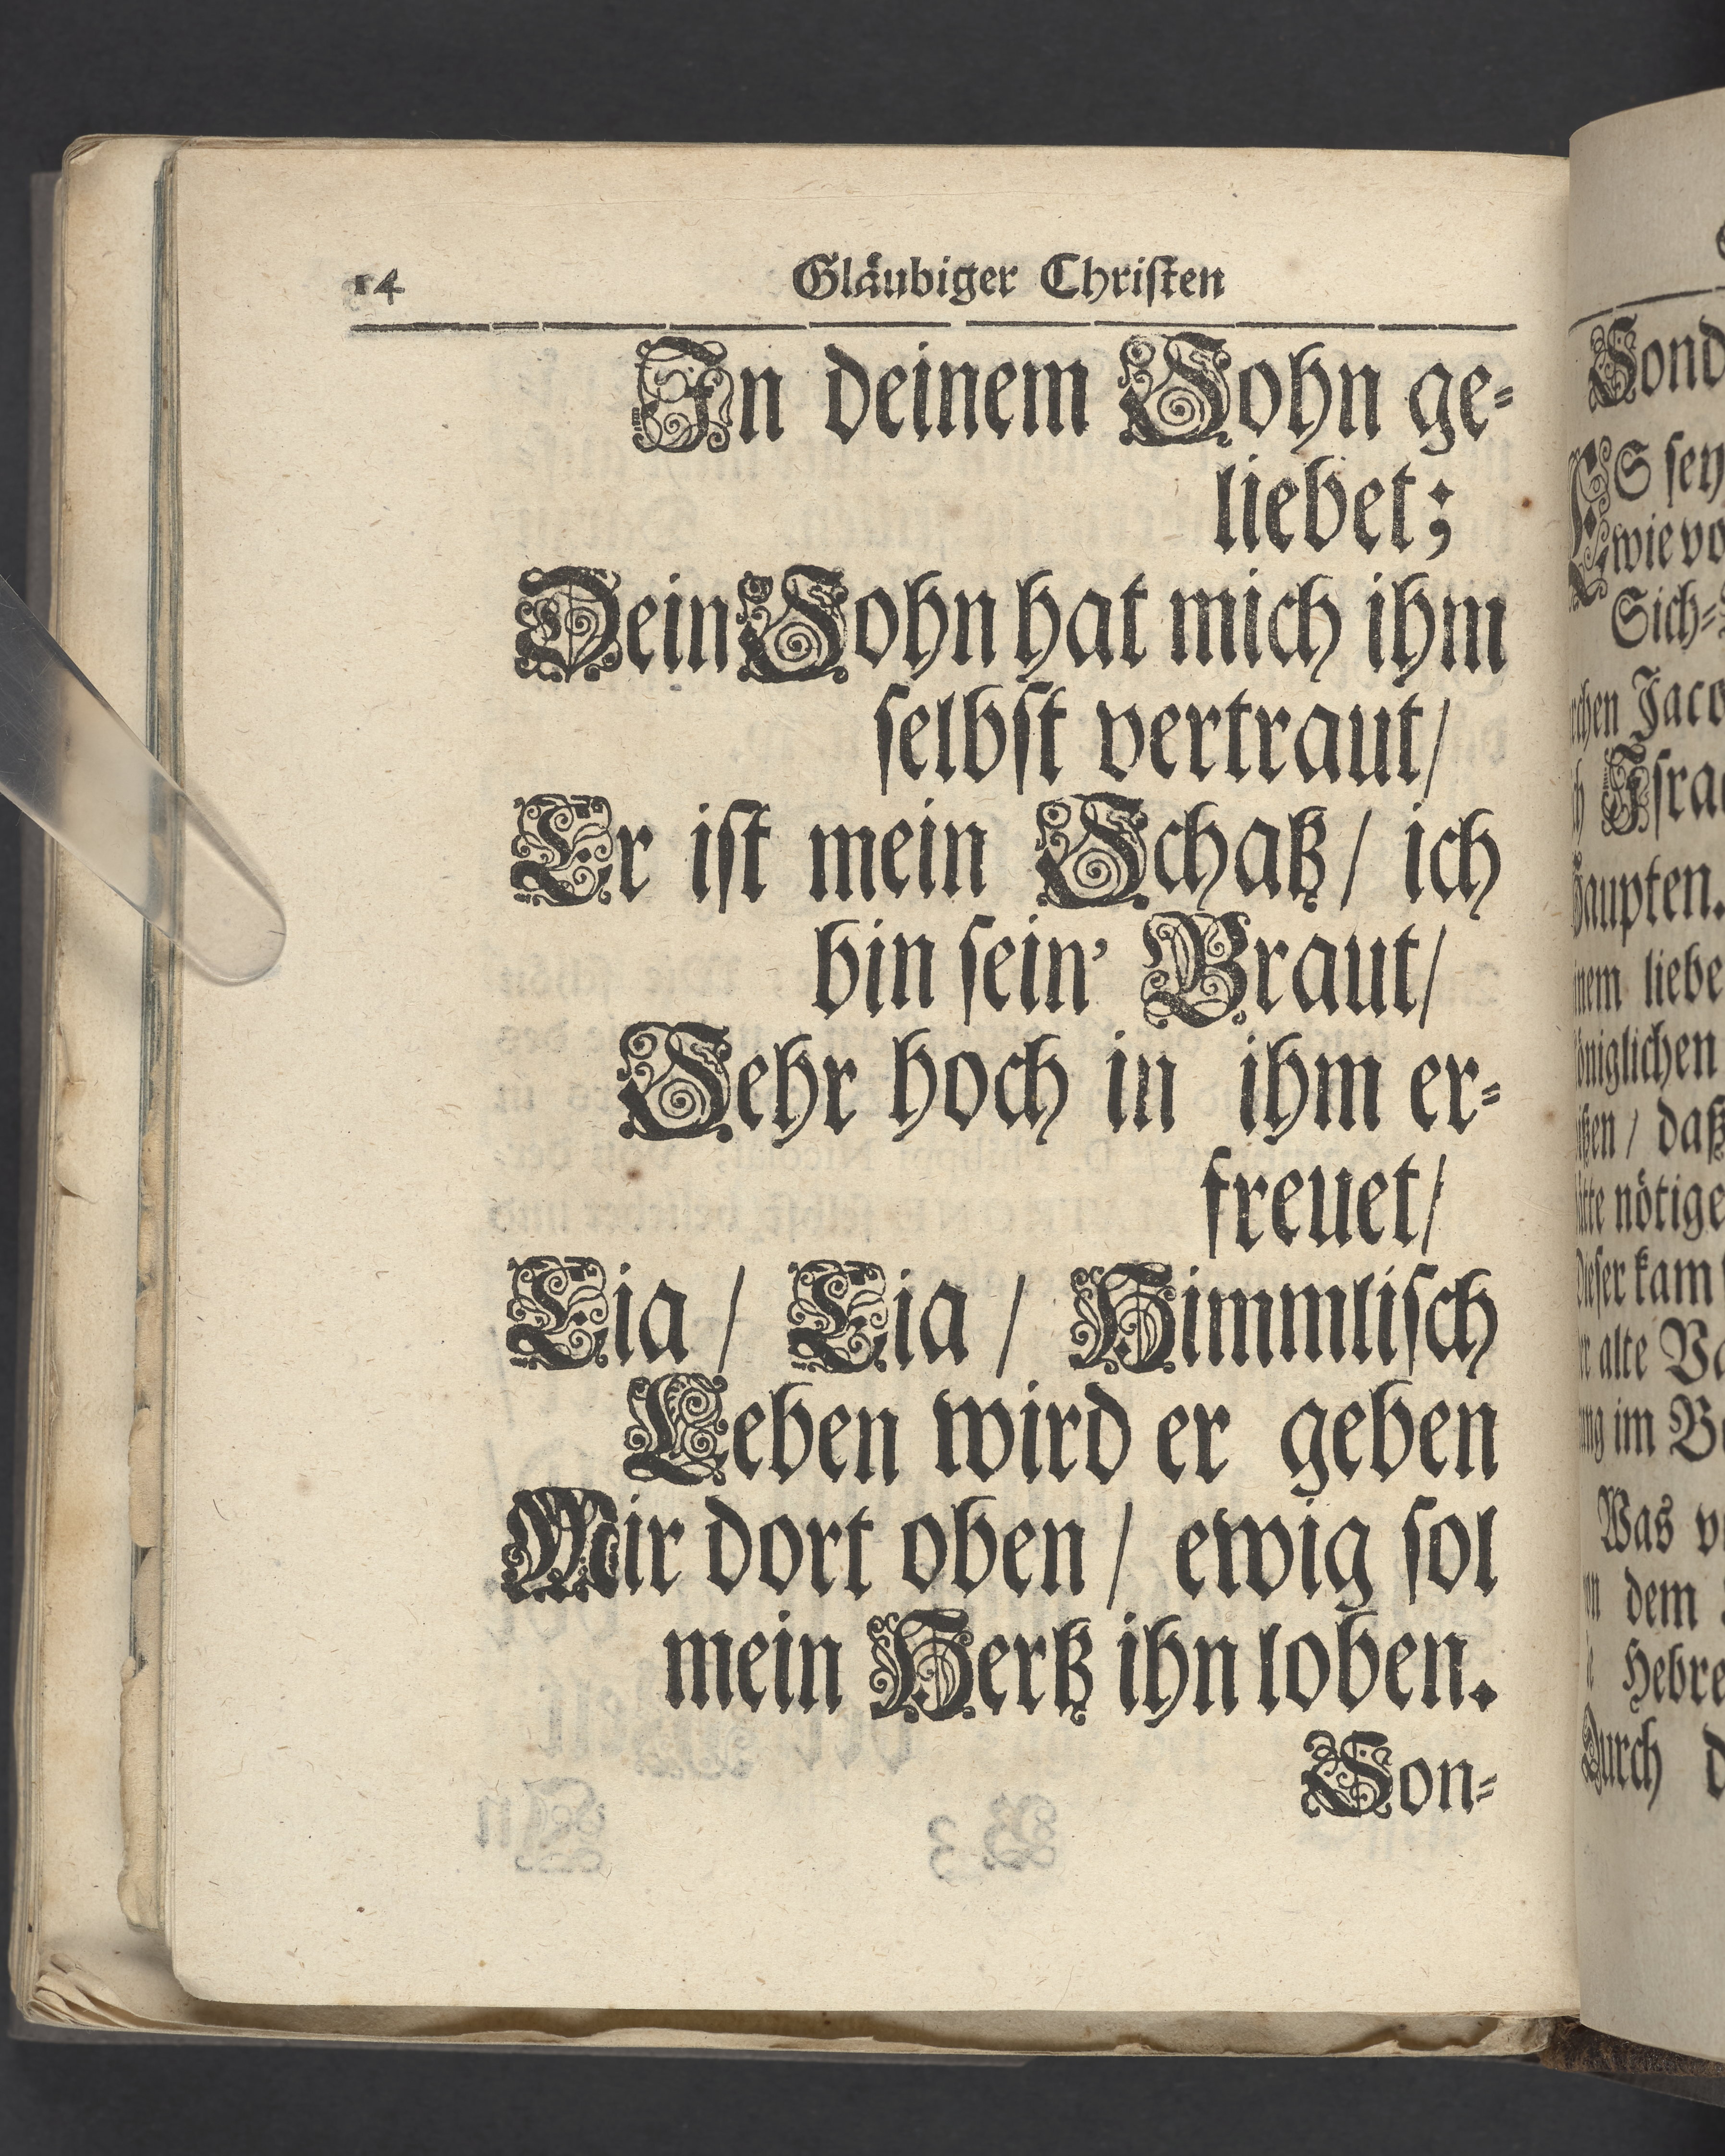 14 Gläubiger Christen
In deinem Sohn ge-
liebet;
Dein Sohn hat mich ihm
selbst vertraut/
Er ist mein Schatz/ ich
bin sein' Braut/
Sehr hoch in ihm er-
freuet/
Eia/ Eia/ Himmlisch
Leben wird er geben
Mir dort oben/ ewig sol
mein Hertz ihn loben.
Son-
Sond
ES sey
wie vo
Sich-
chen Jaco
Isra
haupten.
inem liebe
öniglichen
daß
nötige
Dieser kam
alte Va
im Be
Was
dem
Hebre
Durch d